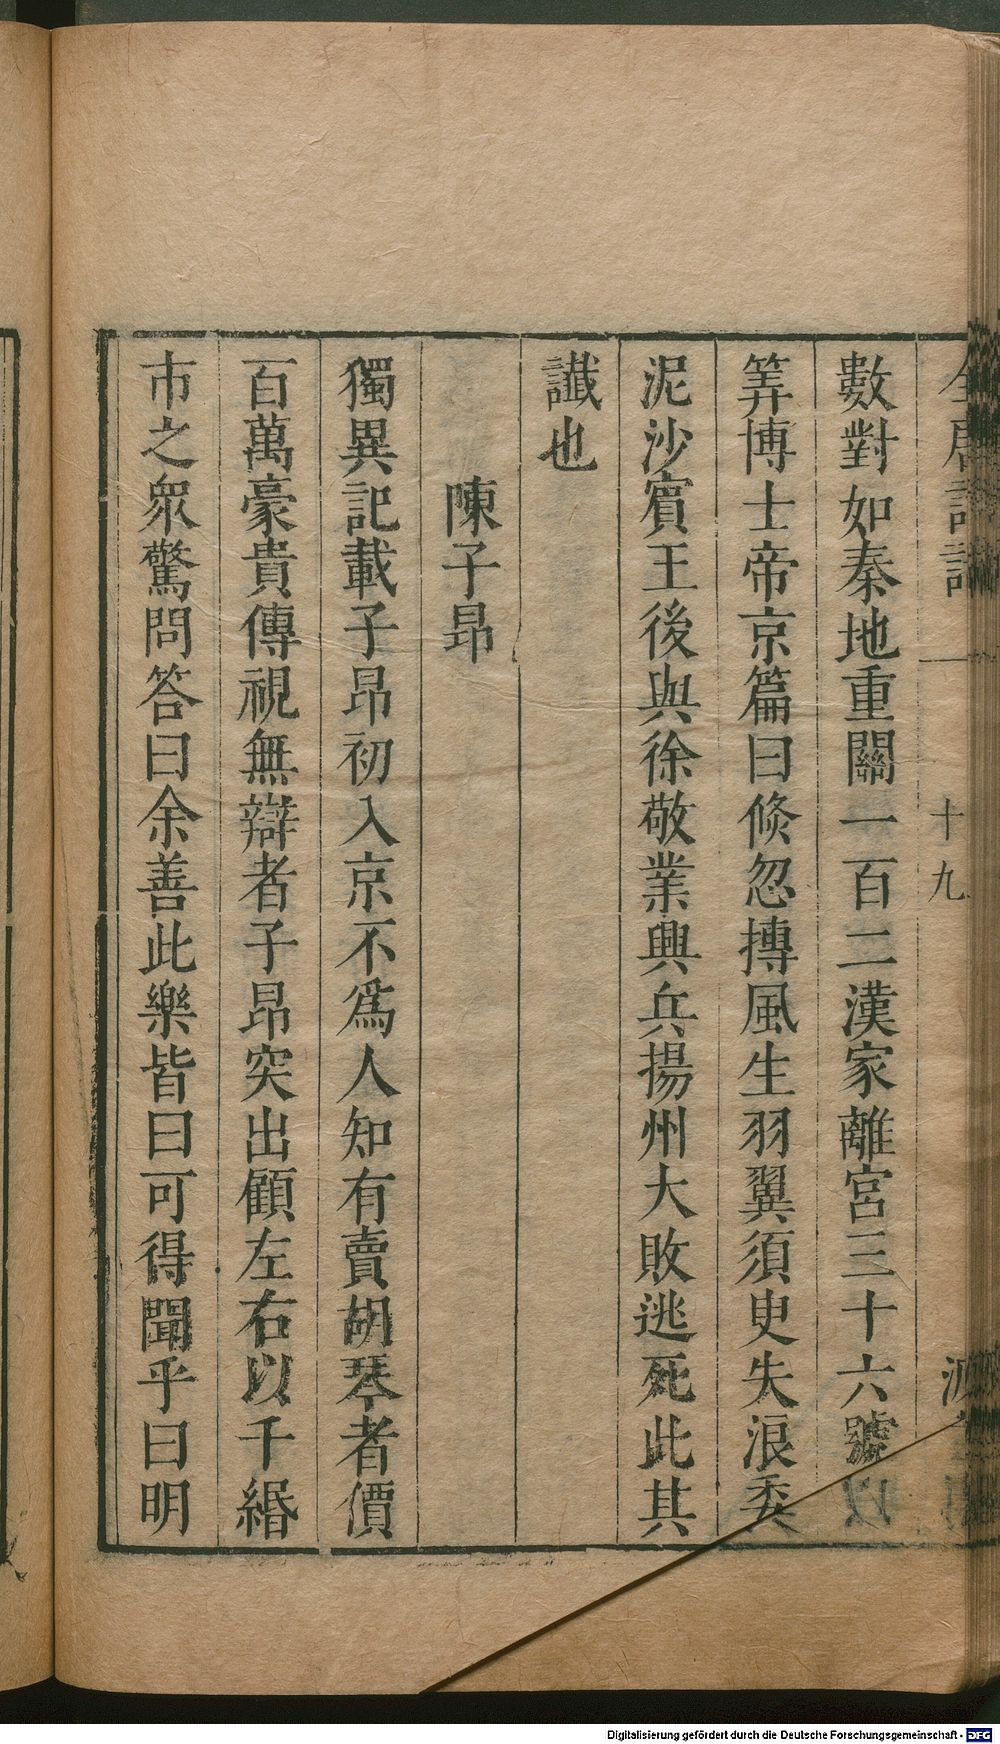 數對如秦地重關一百二漢家離宮三十六號
筭博士帝京篇曰倐忽摶風生羽翼須臾失浪委
泥沙賓王後與徐敬業興兵揚州大敗逃死此其
讖也
陳子昂
獨異記載子昂初入京不爲人知有賣胡琴者價
百萬豪貴傳視無辯者子昂突出顧左右以千緡
市之衆驚問答曰余善此樂皆曰可得聞乎曰明
十九
Digitalisierung gefördert durch die Deutsche Forschungsgemeinschaft - DFG